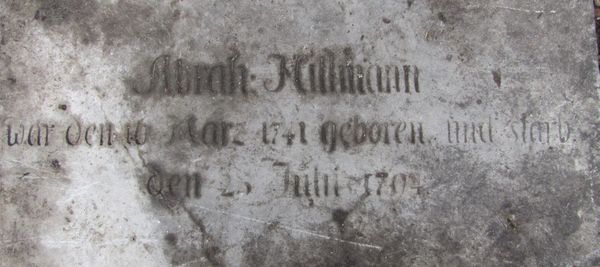 Abrah: Hillmann
war den 16 März 1741 geboren, und starb
den 25 Juli 1794